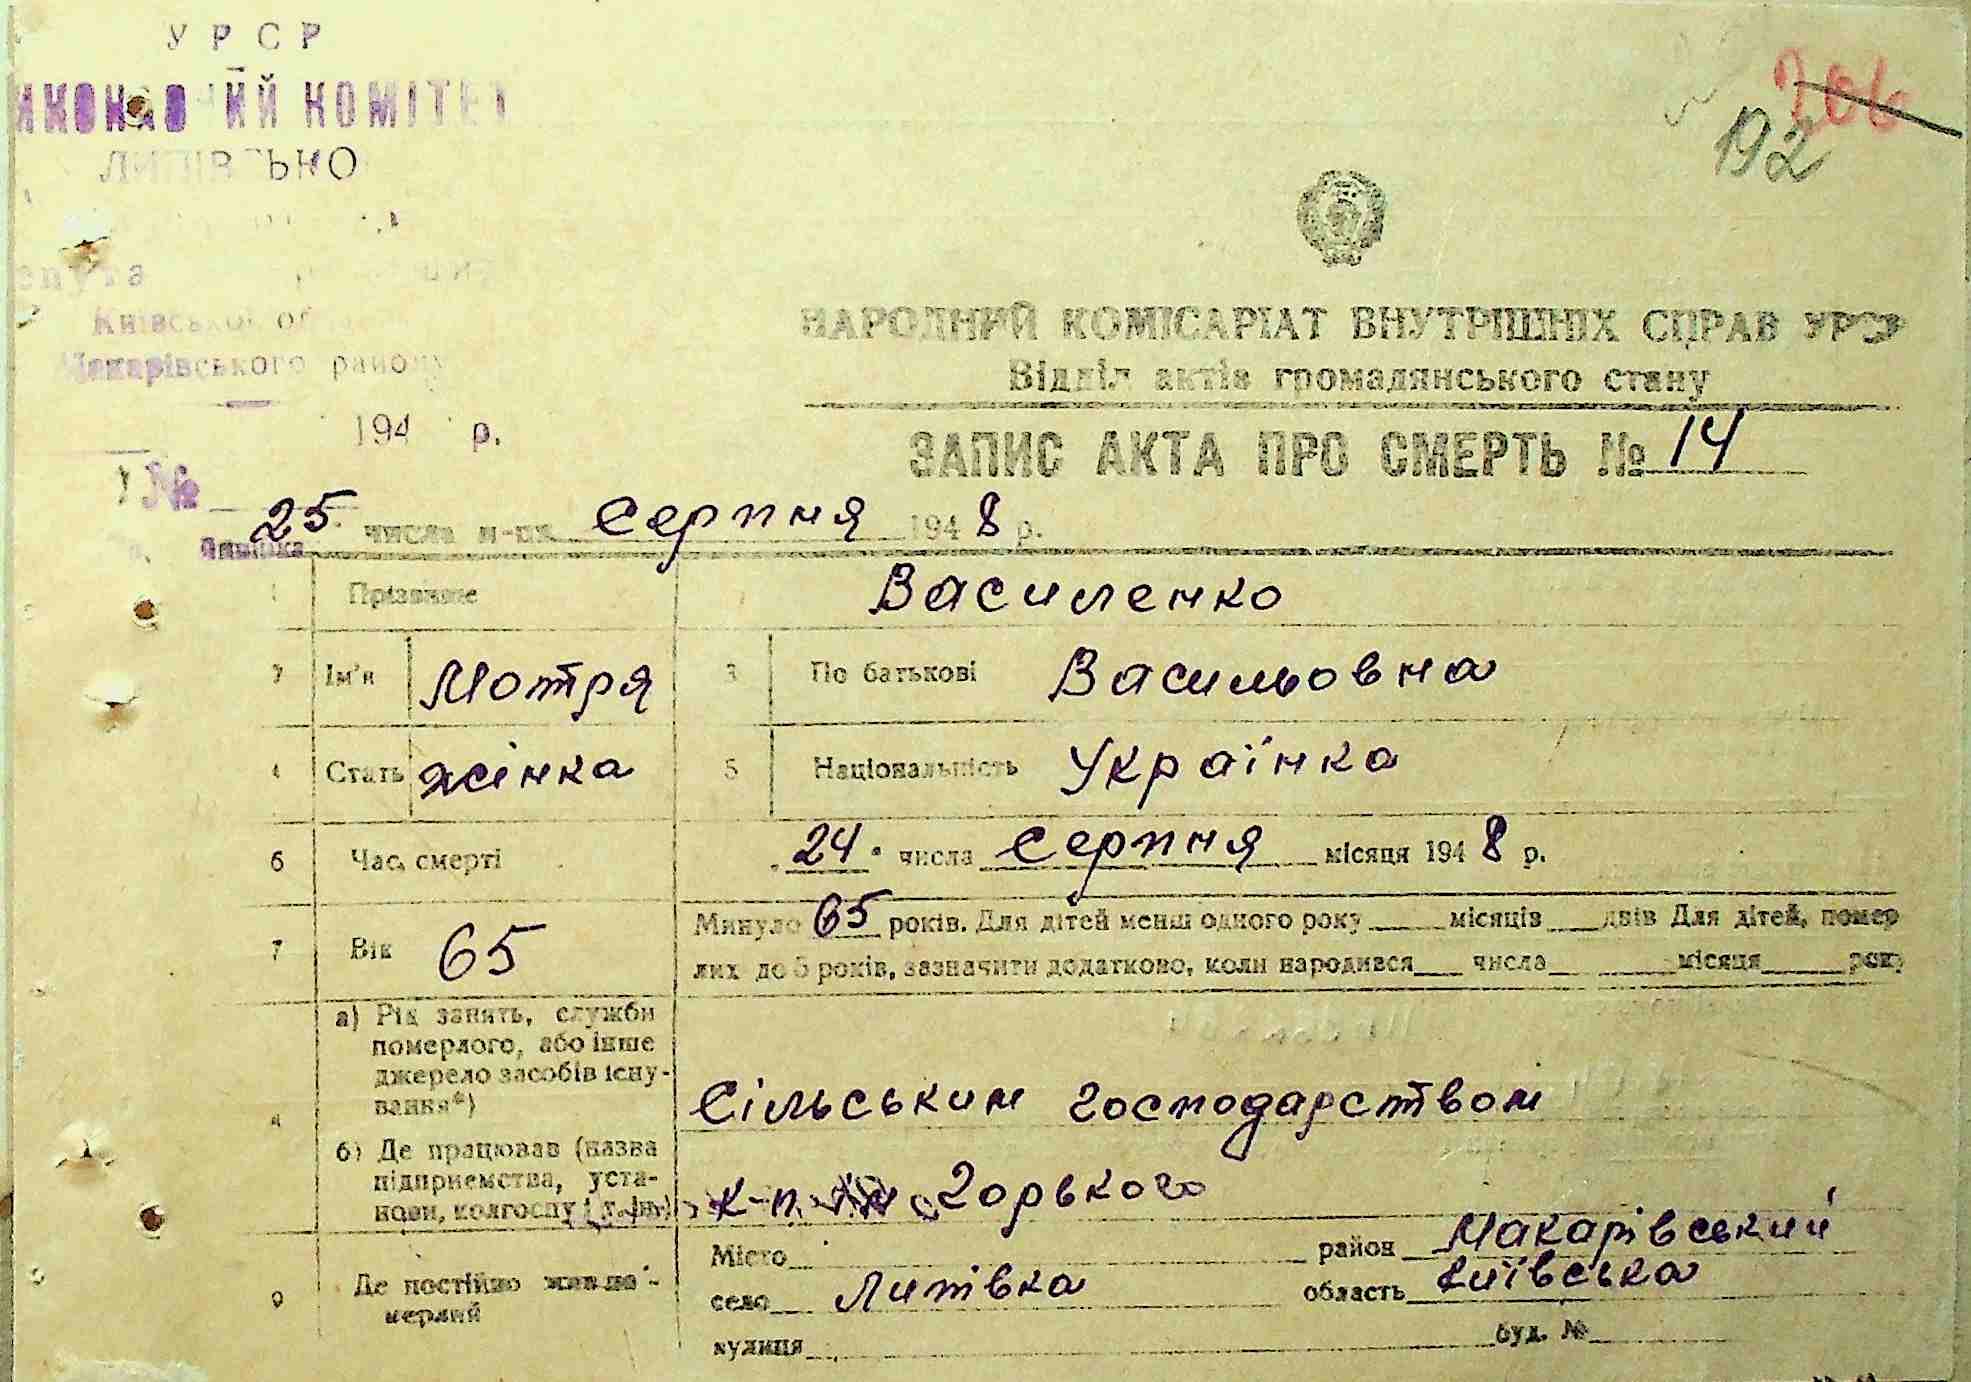 УРСР
КОМІТЕТ
206
192
Київської
Макарівського району
194 р.
№
НАРОДНИЙ КОМІСАРІАТ ВНУТРІШНІХ СПРАВ УРСР
Відділ актів громадянського стану
ЗАПИС АКТА ПРО СМЕРТЬ № 14
25 числа м-ця серпня 1948 р.
1 Прізвище Василенко
2 Ім'я Мотря 3 По батькові Васильовна
4 Стать жінка 5 Національність Українка
6 Час смерті „24" числа серпня місяця 1948 р.
7 Вік 65 Минуло 65 років. Для дітей менш одного року місяців днів Для дітей, помер
лих до 5 років, зазначити додатково, коли народився числа місяця року
а) Рід занять, служби
померлого, або інше
джерело засобів існу-
вання*)
Сільським господарством
8
б) Де працював (назва
підприємства, уста-
нови, колгоспу
к-п. Горького
9 Де постійно жив по-
мерлий
Місто район Макарівський
село Липівка область Київська
вулиця буд. №